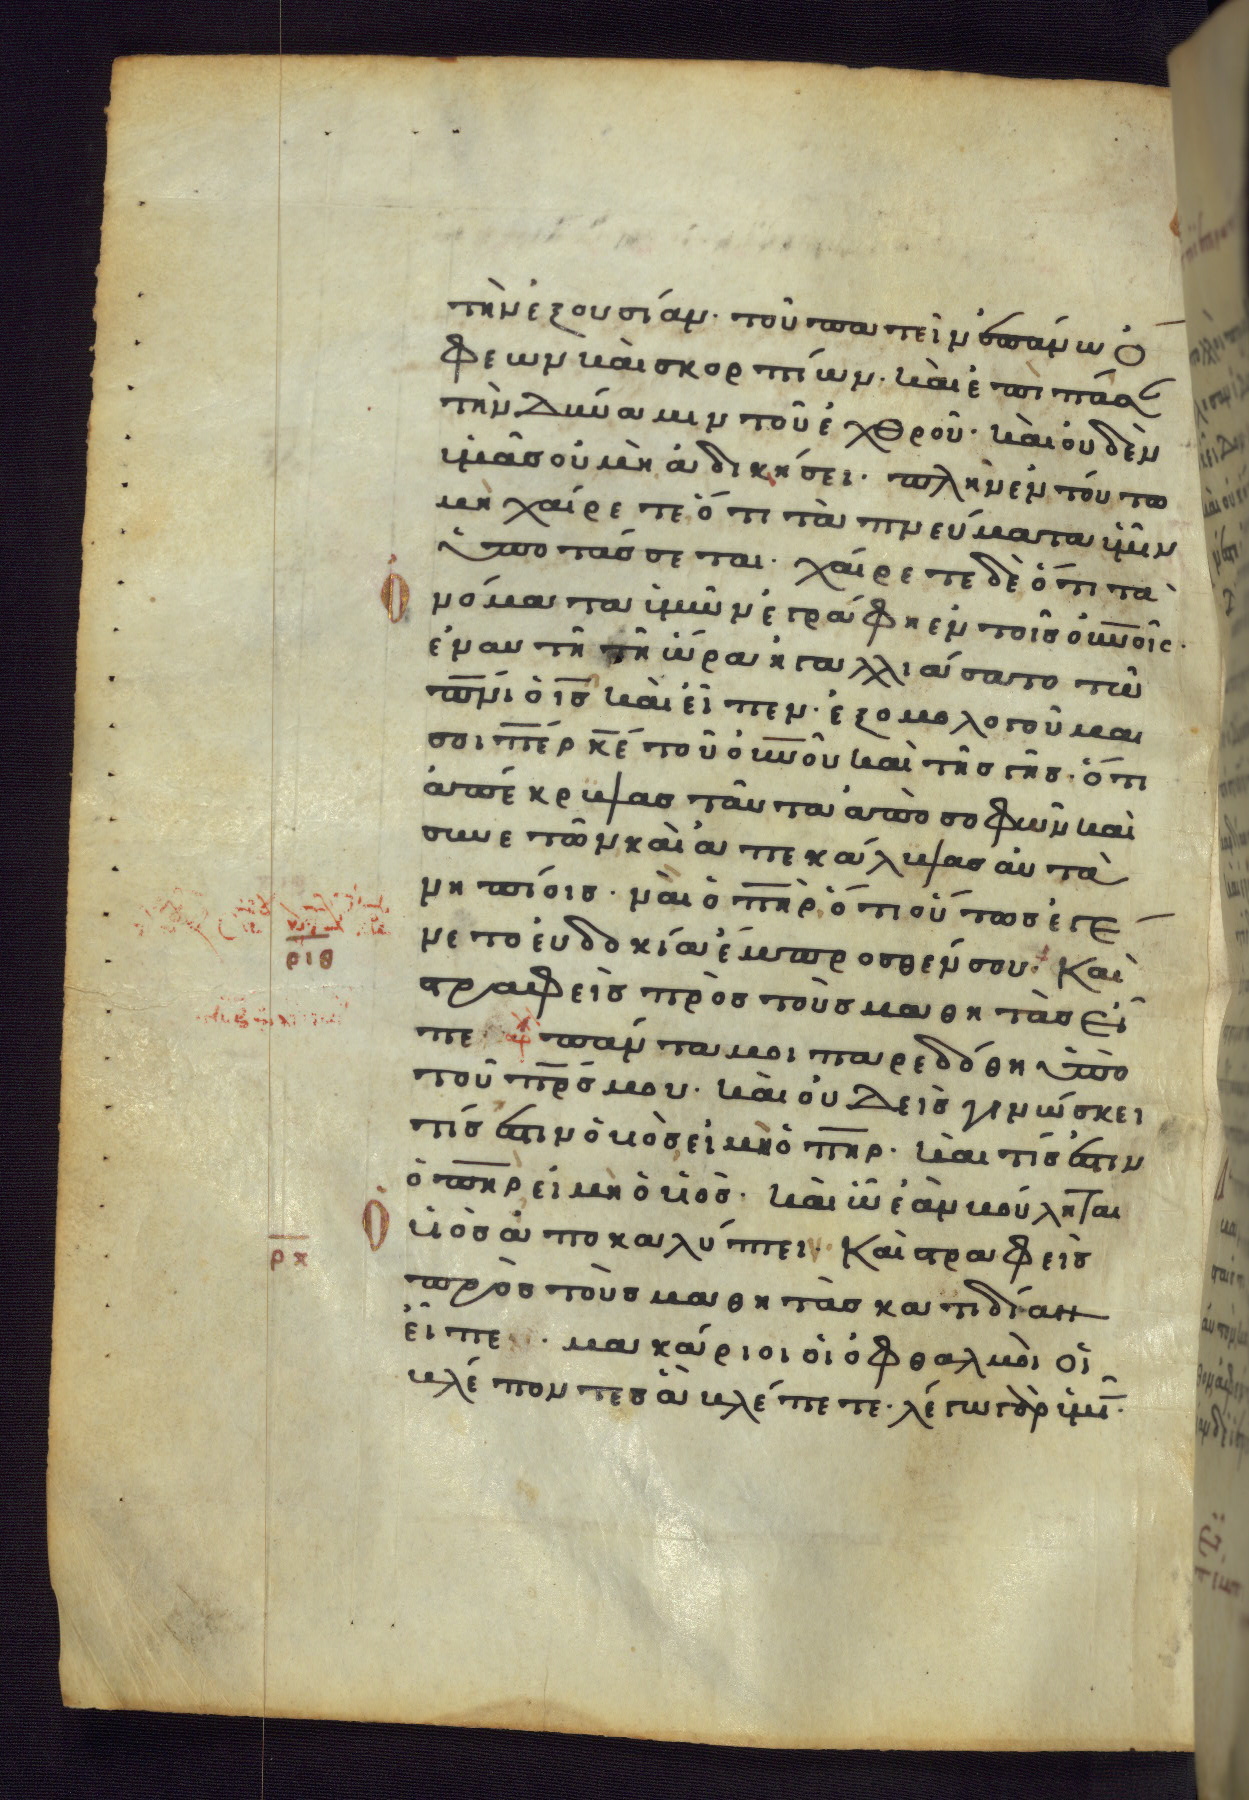 τὴν ἐξουσίαν· τοῦ πατεῖν ἐπάνω ὄ
φεων καὶ σκορπίων· καὶ ἐπι πᾶσ
τὴν δύναμιν τοῦ ἐχθροῦ· καὶ οὐδὲν
ὑμᾶσ οὐ μὴ ἀδικήσει· πλὴν ἐν τούτω
μη χαίρετε ὅτι τὰ πνεύματα ὑμῖν
ὑποτάσσεται· χαίρετε δὲ ὅτι τὰ
ὀνόματα ὑμῶν ἐγράφη ἐν τοῖσ οὐνοῖς·
ἐν αυτῆ τῆ ὥρα ἠγαλλιάσατο τῶ
πνι ὁ ισ καὶ εἶπεν· ἐξομολογοῦμαι
σοι περ κε τοῦ οὐνοῦ καὶ τῆσ γῆσ· ὅτι
ἀπέκρυψασ ταῦτα ἀπὸ σοφῶν καὶ
συνετῶν καὶ ἀπεκάλυψασ αὐτὰ
νηπίοισ· ναὶ ὁ πηρ ὅτι οὕτωσ ἐγέ
νετο ευδοκία ἔμπροσθέν σου· Καὶ
στραφεὶσ πρὸσ τοὺσ μαθητὰσ εἶ
πε πάντα μοι παρεδόθη ὑπὸ
τοῦ πρσ μου· καὶ οὐδεὶσ γινώσκει
τίσ ἐστιν ὁ υἱὸσ εἰ μὴ ὁ πηρ· καὶ τίσ ἐστιν
ὁ πηρ εἰ μὴ ὁ υἱὸσ· καὶ ὧ ἐὰν βούληται
ὁ υἱὸσ ἀποκαλύπτει· Καὶ στραφεὶσ
πρὸσ τοὺσ μαθητὰσ κατιδίαν
εἶπε· μακάριοι οἱ ὀφθαλμοὶ οἱ
βλέποντεσ ἃ βλέπετε· λέγω γὰρ ὑμῖ·
ριθ
ρκ